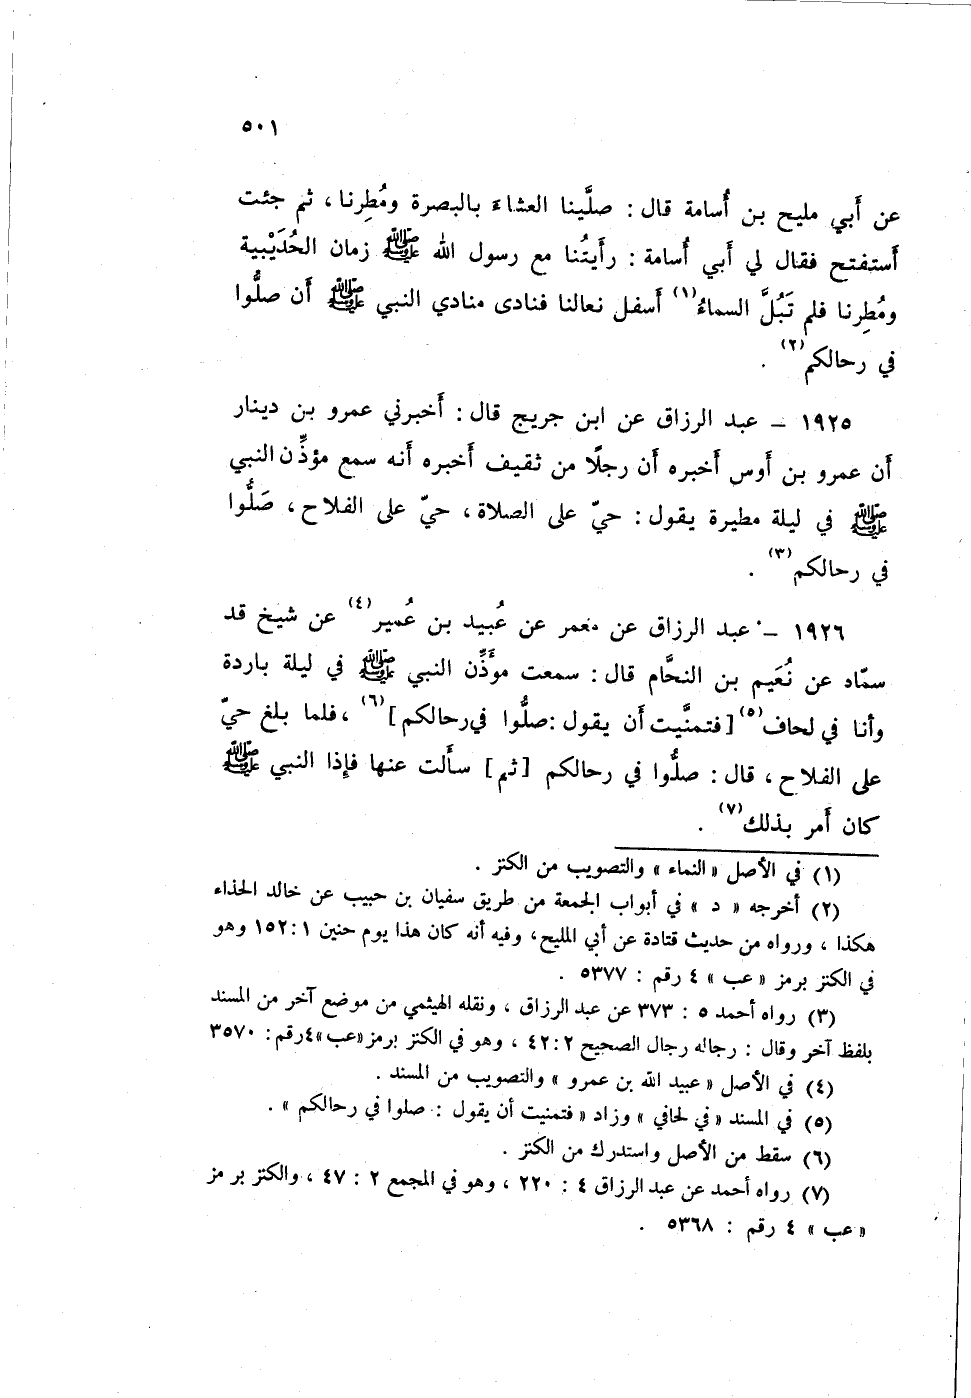 ٥٠١
عن أَبي مليح بن أُسامة قال : صلَّينا العشاءَ بالبصرة ومُطِرنا ، ثم جئت
أَستفتح فقال لي أَبي أُسامة : رأَيتُنا مع رسول الله ﷺ زمان الحُدَيْبية
ومُطِرنا فلم تَبُلَّ السماءُ(١) أَسفل نعالنا فنادى منادي النبي ﷺ أَن صلُّوا
في رحالكم(٢) .
١٩٢٥ – عبد الرزاق عن ابن جريج قال : أَخبرني عمرو بن دينار
أَن عمرو بن أَوس أَخبره أَن رجلًا من ثقيف أَخبره أَنه سمع مؤذِّن النبي
ﷺ في ليلة مطيرة يقول : حيّ على الصلاة ، حيّ على الفلاح ، صَلُّوا
في رحالكم(٣) .
١٩٢٦ – عبد الرزاق عن معمر عن عُبيد بن عُمير(٤) عن شيخ قد
سمّاه عن نُعَيم بن النحَّام قال : سمعت مؤَذِّن النبي ﷺ في ليلة باردة
وأنا في لحاف(٥) [فتمنَّيت أَن يقول : صلُّوا في رحالكم](٦) ، فلما بلغ حيّ
على الفلاح ، قال : صلُّوا في رحالكم [ثم] سأَلت عنها فإِذا النبي ﷺ
كان أَمر بذلك(٧) .
(١) في الأصل «النماء» والتصويب من الكنز .
(٢) أخرجه « د » في أبواب الجمعة من طريق سفيان بن حبيب عن خالد الحذاء
هكذا ، ورواه من حديث قتادة عن أبي المليح، وفيه أنه كان هذا يوم حنين ١ : ١٥٢ وهو
في الكنز برمز «عب» ٤ رقم : ٥٣٧٧ .
(٣) رواه أحمد ٥ : ٣٧٣ عن عبد الرزاق ، ونقله الهيثمي من موضع آخر من المسند
بلفظ آخر وقال : رجاله رجال الصحيح ٢ : ٤٢ ، وهو في الكنز برمز «عب» ٤ رقم : ٣٥٧٠
(٤) في الأصل «عبيد الله بن عمرو» والتصويب من المسند .
(٥) في المسند «في لحافي» وزاد «فتمنيت أن يقول : صلوا في رحالكم» .
(٦) سقط من الأصل واستدرك من الكنز .
(٧) رواه أحمد عن عبد الرزاق ٤ : ٢٢٠ ، وهو في المجمع ٢ : ٤٧ ، والكنز برمز
«عب» ٤ رقم : ٥٣٦٨ .